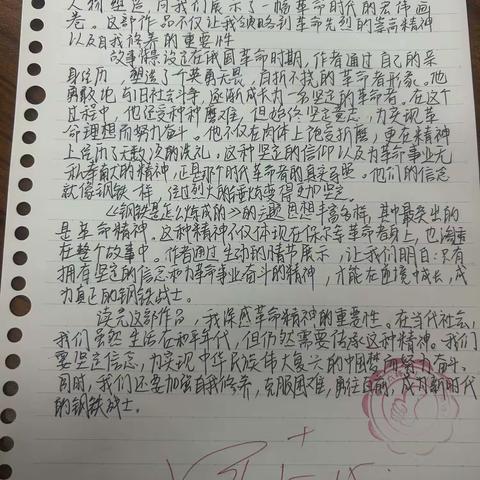 人物塑造,向我们展示了一幅革命时代的宏伟画
卷。这部作品不仅让我领略到革命先烈的崇高精神
以及自我修养的重要性
故事背景设定在俄国革命时期,作者通过自己的亲
身经历,塑造了个英勇无畏,百折不挠的革命者形象。他
勇敢地与旧社会斗争,逐渐成长为一名坚定的革命者。在这个
过程中,他经受种种磨难,但始终坚定意志,为实现革
命理想而努力奋斗。他不仅在肉体上饱受折磨,更在精神
上经历了无数次的洗礼。这种坚定的信仰以及为革命事业无
私奉献的精神,正是那个时代革命者的真实写照。他们的信念
就像钢铁一样,经过烈火的锤炼变得更加坚定。
《钢铁是怎么炼成的》的主题思想丰富多样,其中最突出的
是革命精神。这种精神不仅体现在保尔等革命者身上,也
在整个故事中。作者通过生动的情节展示,让我们明白:只有
拥有坚定的信念和为革命事业奋斗的精神,才能在困境中成长,成
为真正的钢铁战士。
读完这部作品,我深感革命精神的重要性。在当代社会,
我们虽然生活在和平年代,但仍然需要传承这种精神。我们
要坚定信念,为实现中华民族伟大复兴的中国梦而努力奋斗。
同时,我们还要加强自我修养,克服困难,勇往直前,成为新时代
的钢铁战士。